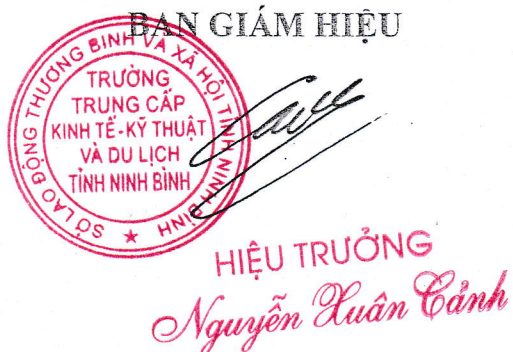 BAN GIÁM HIỆU
SỞ LAO ĐỘNG THƯƠNG BINH VÀ XÃ HỘI TỈNH NINH BÌNH
TRƯỜNG
TRUNG CẤP
KINH TẾ-KỸ THUẬT
VÀ DU LỊCH
TỈNH NINH BÌNH
HIỆU TRƯỞNG
Nguyễn Xuân Cảnh